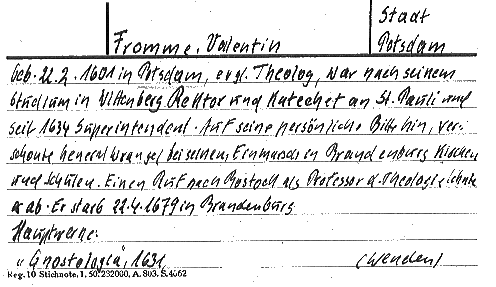 Stadt
Fromme, Valentin Potsdam
Geb. 22.2.1601 in Potsdam, evgl. Theolog, war nach seinem
Studium in Wittenberg Rektor und Katechet an St. Pauli und
seit 1634 Superintendent. Auf seine persönliche Bitte hin, ver-
schonte General Wrangel bei seinem Einmarsch in Brandenburg Kirchen
und Schulen. Einen Ruf nach Rostock als Professor d. Theologie lehnte
er ab. Er starb 22.4.1679 in Brandenburg
Hauptwerke:
"Gnostologia", 1631 (Wenden)
Reg. 10 Stichnote, 1, 50. 232000, A. 803. S. 4062